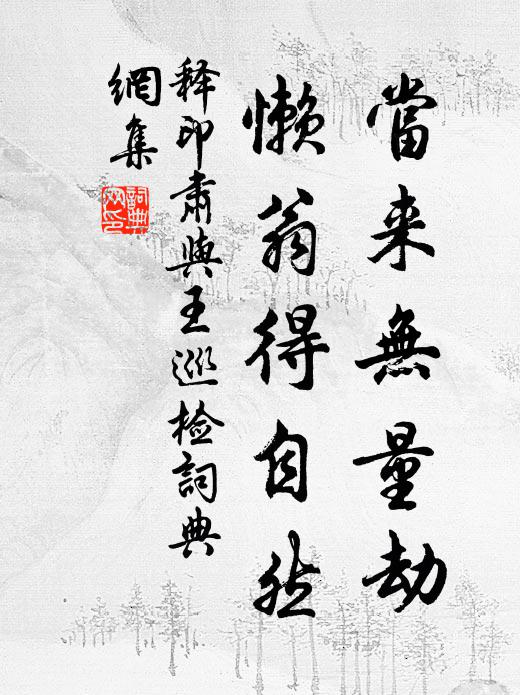 當来無量劫
懶翁得自然
释印肅與王巡檢詞典
網集
詞典
网印